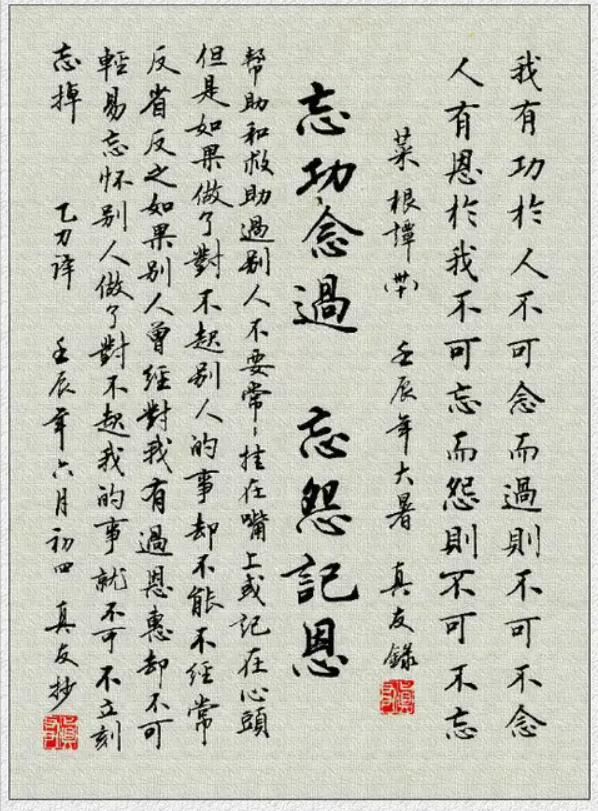 我有功於人不可念而過則不可不念
人有恩於我不可忘而怨則不可不忘
菜根譚 壬辰年大暑 真友錄
忘功念過 忘怨記恩
幫助和救助過别人不要常〻挂在嘴上或記在心頭
但是如果做了對不起别人的事却不能不經常
反省反之如果别人曾經對我有過恩惠却不可
輕易忘怀别人做了對不起我的事就不可不立刻
忘掉 乙力译 壬辰年六月初四 真友抄